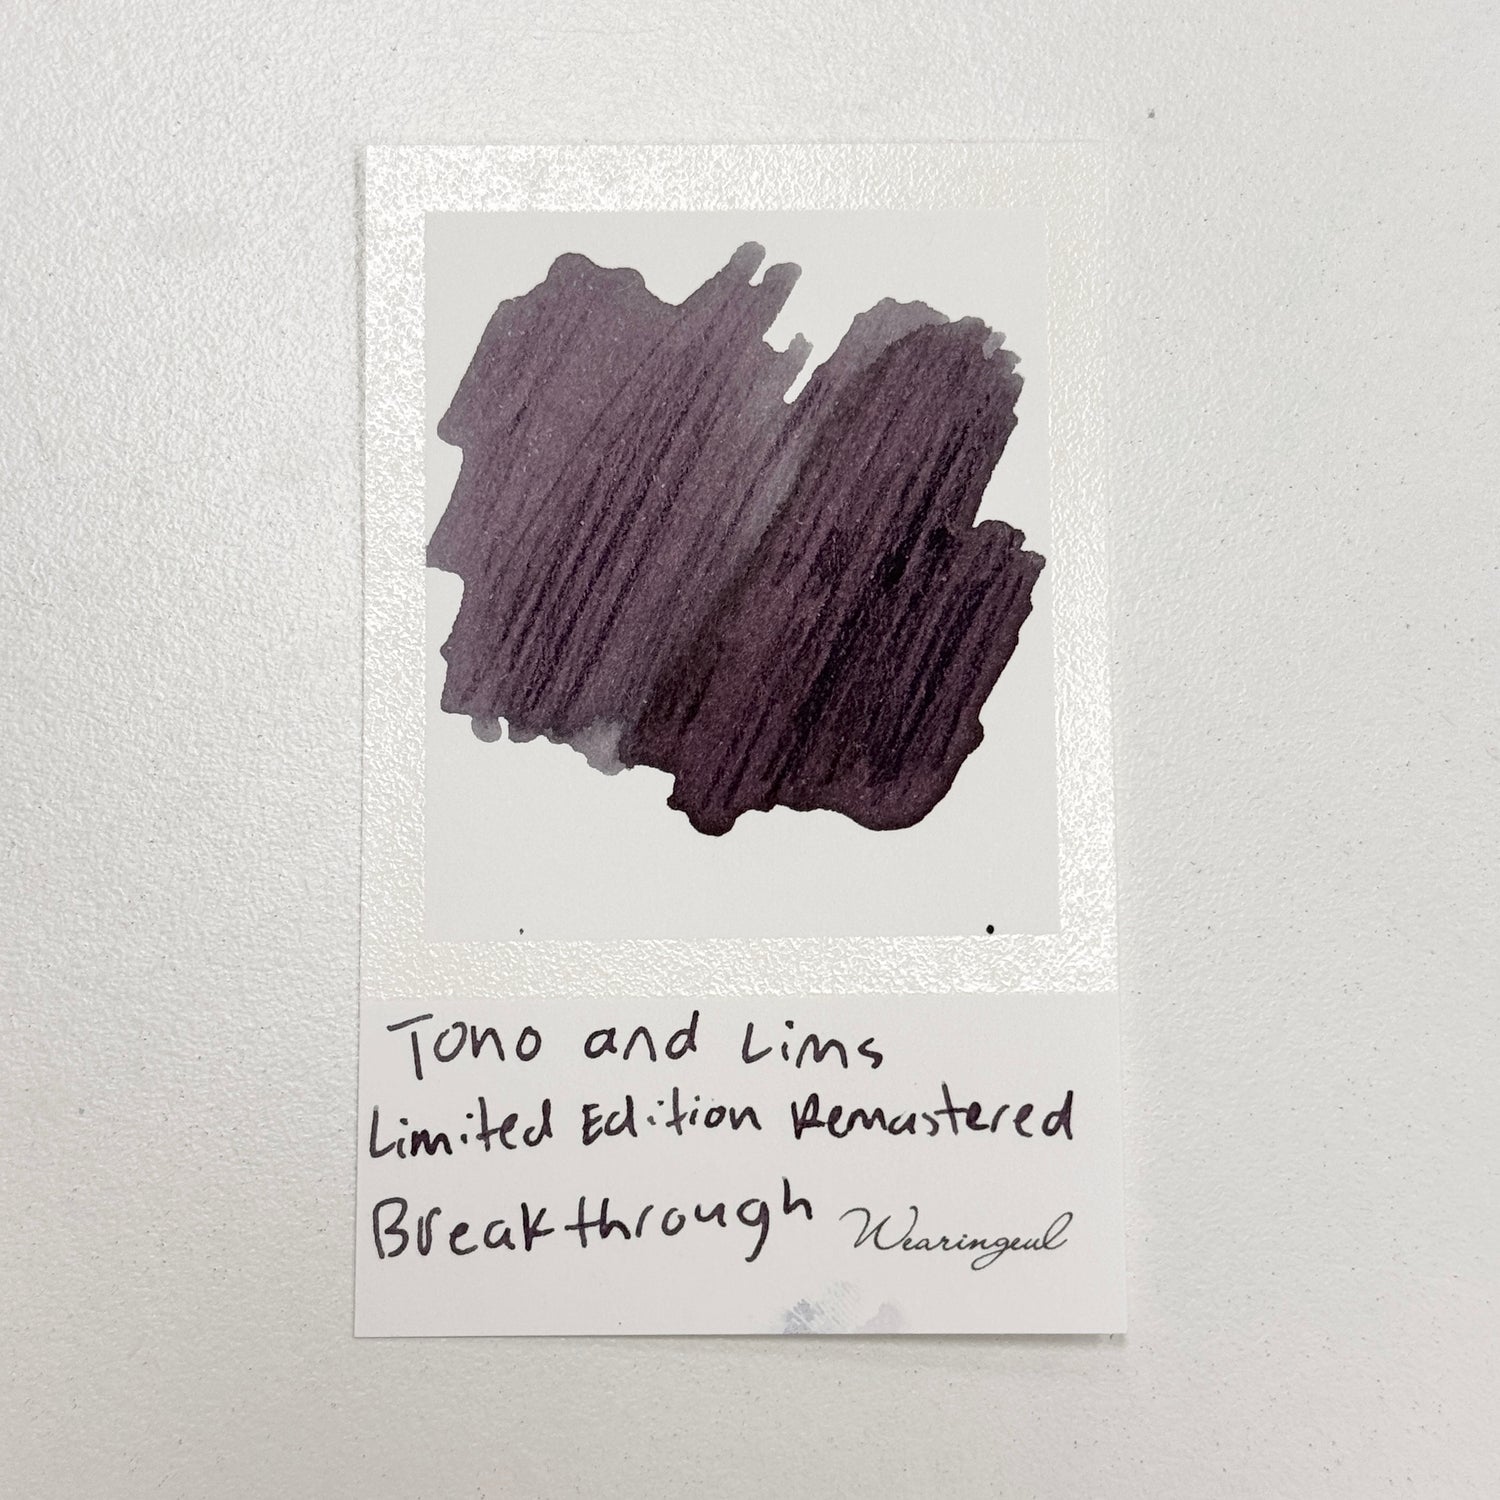 Tono and Lims
Limited Edition Remastered
Breakthrough
Wearingeul